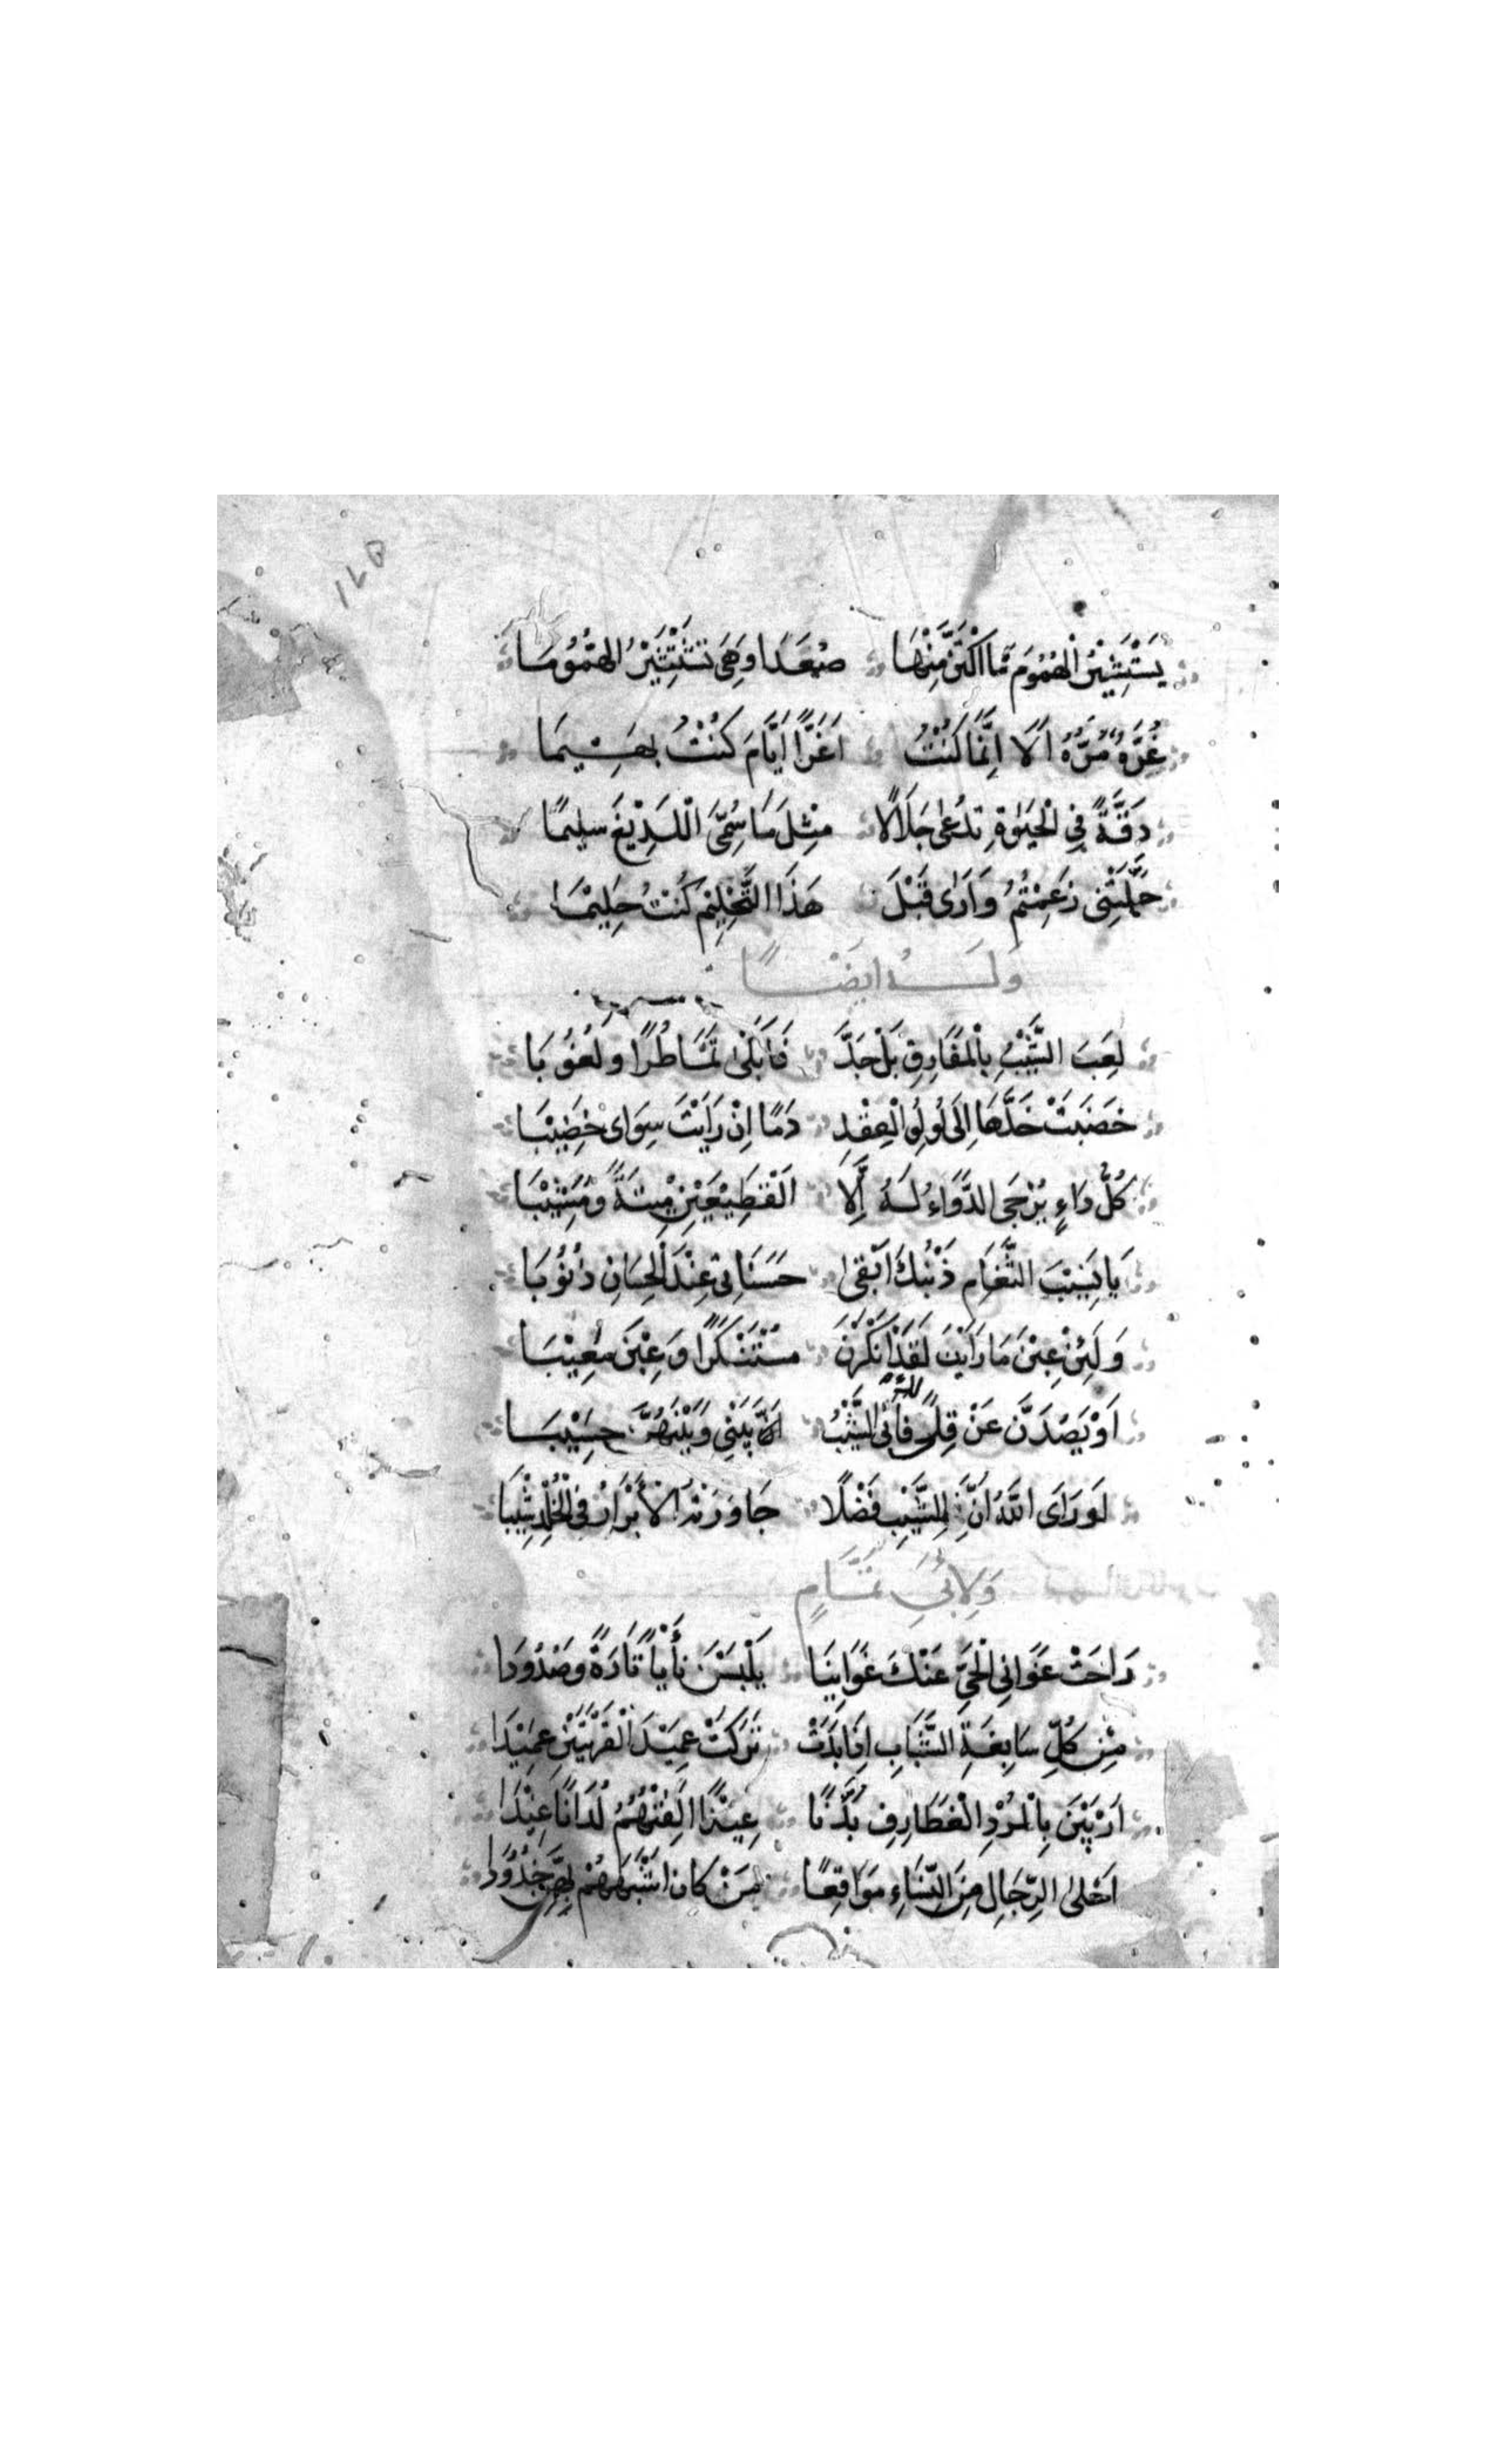 يَسْتَثِيْرُ الْهُمُوْمَ مَا اكْتَنَّ مِنْهَا صُعَدًا وَهِيَ تَسْتَثِيْرُ الهُمُوُمَا
غُرَّةٌ مُرَّةٌ اَلَا اِنَّمَا كُنْتُ اَغَرًّا اَيَّامَ كُنْتُ بَهِيمَا
دِقَّةً فِي الْحَيٰوةِ تُدْعٰى جَلَالًا مِثْلَ مَا سُمِّيَ اللَّدِيْغَ سَلِيمًا
حَلَّمَتْنِى زَعَمْتُمُ وَاَرَانِى قَبْلَ هَذَا التَّحْلِيْمِ كُنْتُ حَلِيْمَا
وَلَهُ اَيْضًا
لَعِبَ الشَّيْبُ بِالْمَفَارِقِ بَلْ جَدَّ فَاَبْكٰى تُمَاضِرًا وَلَعُوْبَا
خَضَبَتْ خَدَّهَا اِلَى لُؤلُؤِ الْعِقْدِ دَمًا اِنْ رَاَيْتَ سِوَاىَ خَضِيْبَا
كُلُّ دَاءٍ يُرْجَى الدَّوَاءُ لَهُ اِلَّا الْفَظِيْعَيْنِ مِيْتَةً وَمَشِيْبَا
يَا نَسِيْبَ الثَّغَامِ ذَنْبُكَ اَبْقٰى حَسَنَاتِى عِنْدَ الْحِسَانِ ذُنُوْبَا
وَلَئِنْ عِبْنَ مَا رَاَيْنَ لَقَدْ اَنْكَرْنَ مُسْتَنْكَرًا وَعِبْنَ مَعِيْبَا
اَوْ يَصْدَّنَ عَنْ قِلًى فَاَبَى الشَّيْبُ بَيْنِى وَبَيْنَهُنَّ حَسِيْبَا
لَوْ رَاَى اللهُ اَنَّ لِلشَّيْبِ فَضْلًا جَاوَرَتْهُ الْاَبْرَارُ فِى الْخُلْدِ شِيْبَا
وَلِاَبِي تَمَّامٍ
رَاحَتْ غَوَانِي الْحَيِّ عَنْكَ غَوَانِيَا يَلْبَسْنَ نَأْيًا تَارَةً وَصُدُوْدَا
مِنْ كُلِّ سَابِغَةِ الشَّبَابِ اِذَا بَدَتْ تَرَكَتْ عَمِيْدَ الْقَرْيَتَيْنِ عَمِيْدَا
اَرْبَيْنَ بِالْمُرْدِ الْغَطَارِفِ بُدَّنًا غِيْدًا اَلِفْنَهُمُ لُدَانًا غِيْدَا
اَحْلٰى الرِّجَالِ مِنَ النِّسَاءِ مَوَاقِعًا مَنْ كَانَ اَشْبَهَهُمْ بِهِنَّ خُدُوْدَا